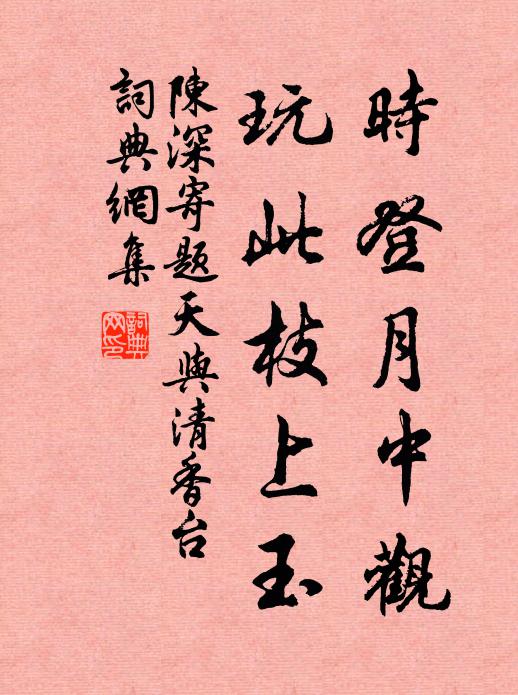 時登月中觀
玩此枝上玉
陳深寄題天與清香台
詞典網集
詞典網印